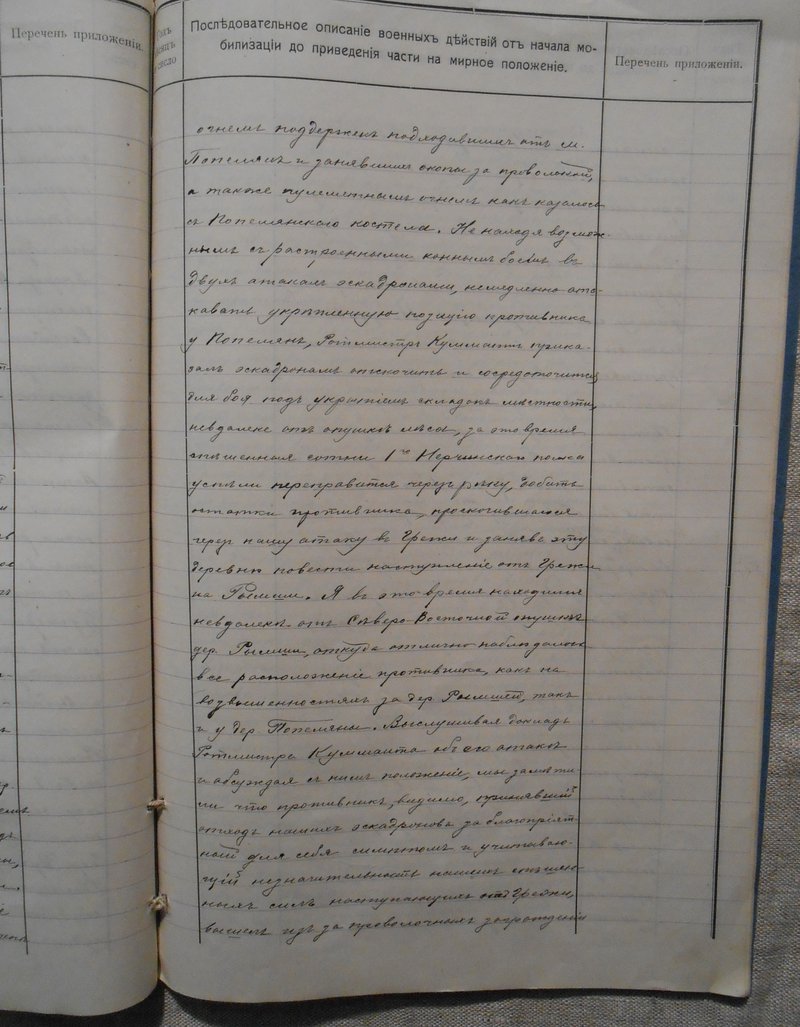 Перечень приложенiй.
Послѣдовательное описанiе военныхъ дѣйствiй отъ начала мо-
билизацiи до приведенiя части на мирное положенiе.
Перечень приложенiй.
огнемъ поддержекъ подходившихъ отъ м.
Попелянъ и занявшихъ окопы за проволокой,
а также пулеметнымъ огнемъ какъ казалось
съ Попелянскаго костела. Не находя возмож-
нымъ съ растроенными коннымъ боемъ въ
двухъ атакахъ эскадронами, немедленно ата-
ковать укрѣпленную позицiю противника
у Попелянъ, Ротмистръ Куммантъ прика-
залъ эскадронамъ отскочить и сосредоточится
для боя подъ укрытiемъ складокъ мѣстности,
невдалеке отъ опушки лѣса, за это время
спѣшенныя сотни 1го Нерчинскаго полка
успѣли переправится черезъ рѣку, добить
остатки противника, проскочившаго
через нашу атаку въ и занявъ эту
деревню повести наступленiе отъ
на Рымши. Я въ это время находился
невдалекѣ отъ Сѣверо-Восточной опушки
дер. Рымши, откуда отлично наблюдалось
все расположенiе противника, какъ на
возвышенностяхъ за дер. Рымшей, такъ
и у дер. Попеляны. Выслушивая докладъ
Ротмистра Кумманта объ его атакѣ
и обсуждая съ нимъ положенiе, мы замѣти-
ли что противникъ, видимо, принявшiй
отходъ нашихъ эскадроновъ за благопрiят-
ный для себя симптомъ и учитываю-
щiй незначительность нашихъ спѣшен-
ныхъ силъ наступающихъ
вышелъ изъ за проволочныхъ загражденiй